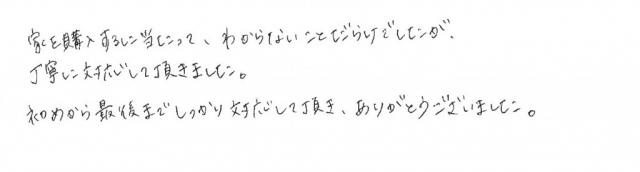 家を購入するに当たって、わからないことだらけでしたが、
丁寧に対応して頂きました。
初めから最後までしっかり対応して頂き、ありがとうございました。